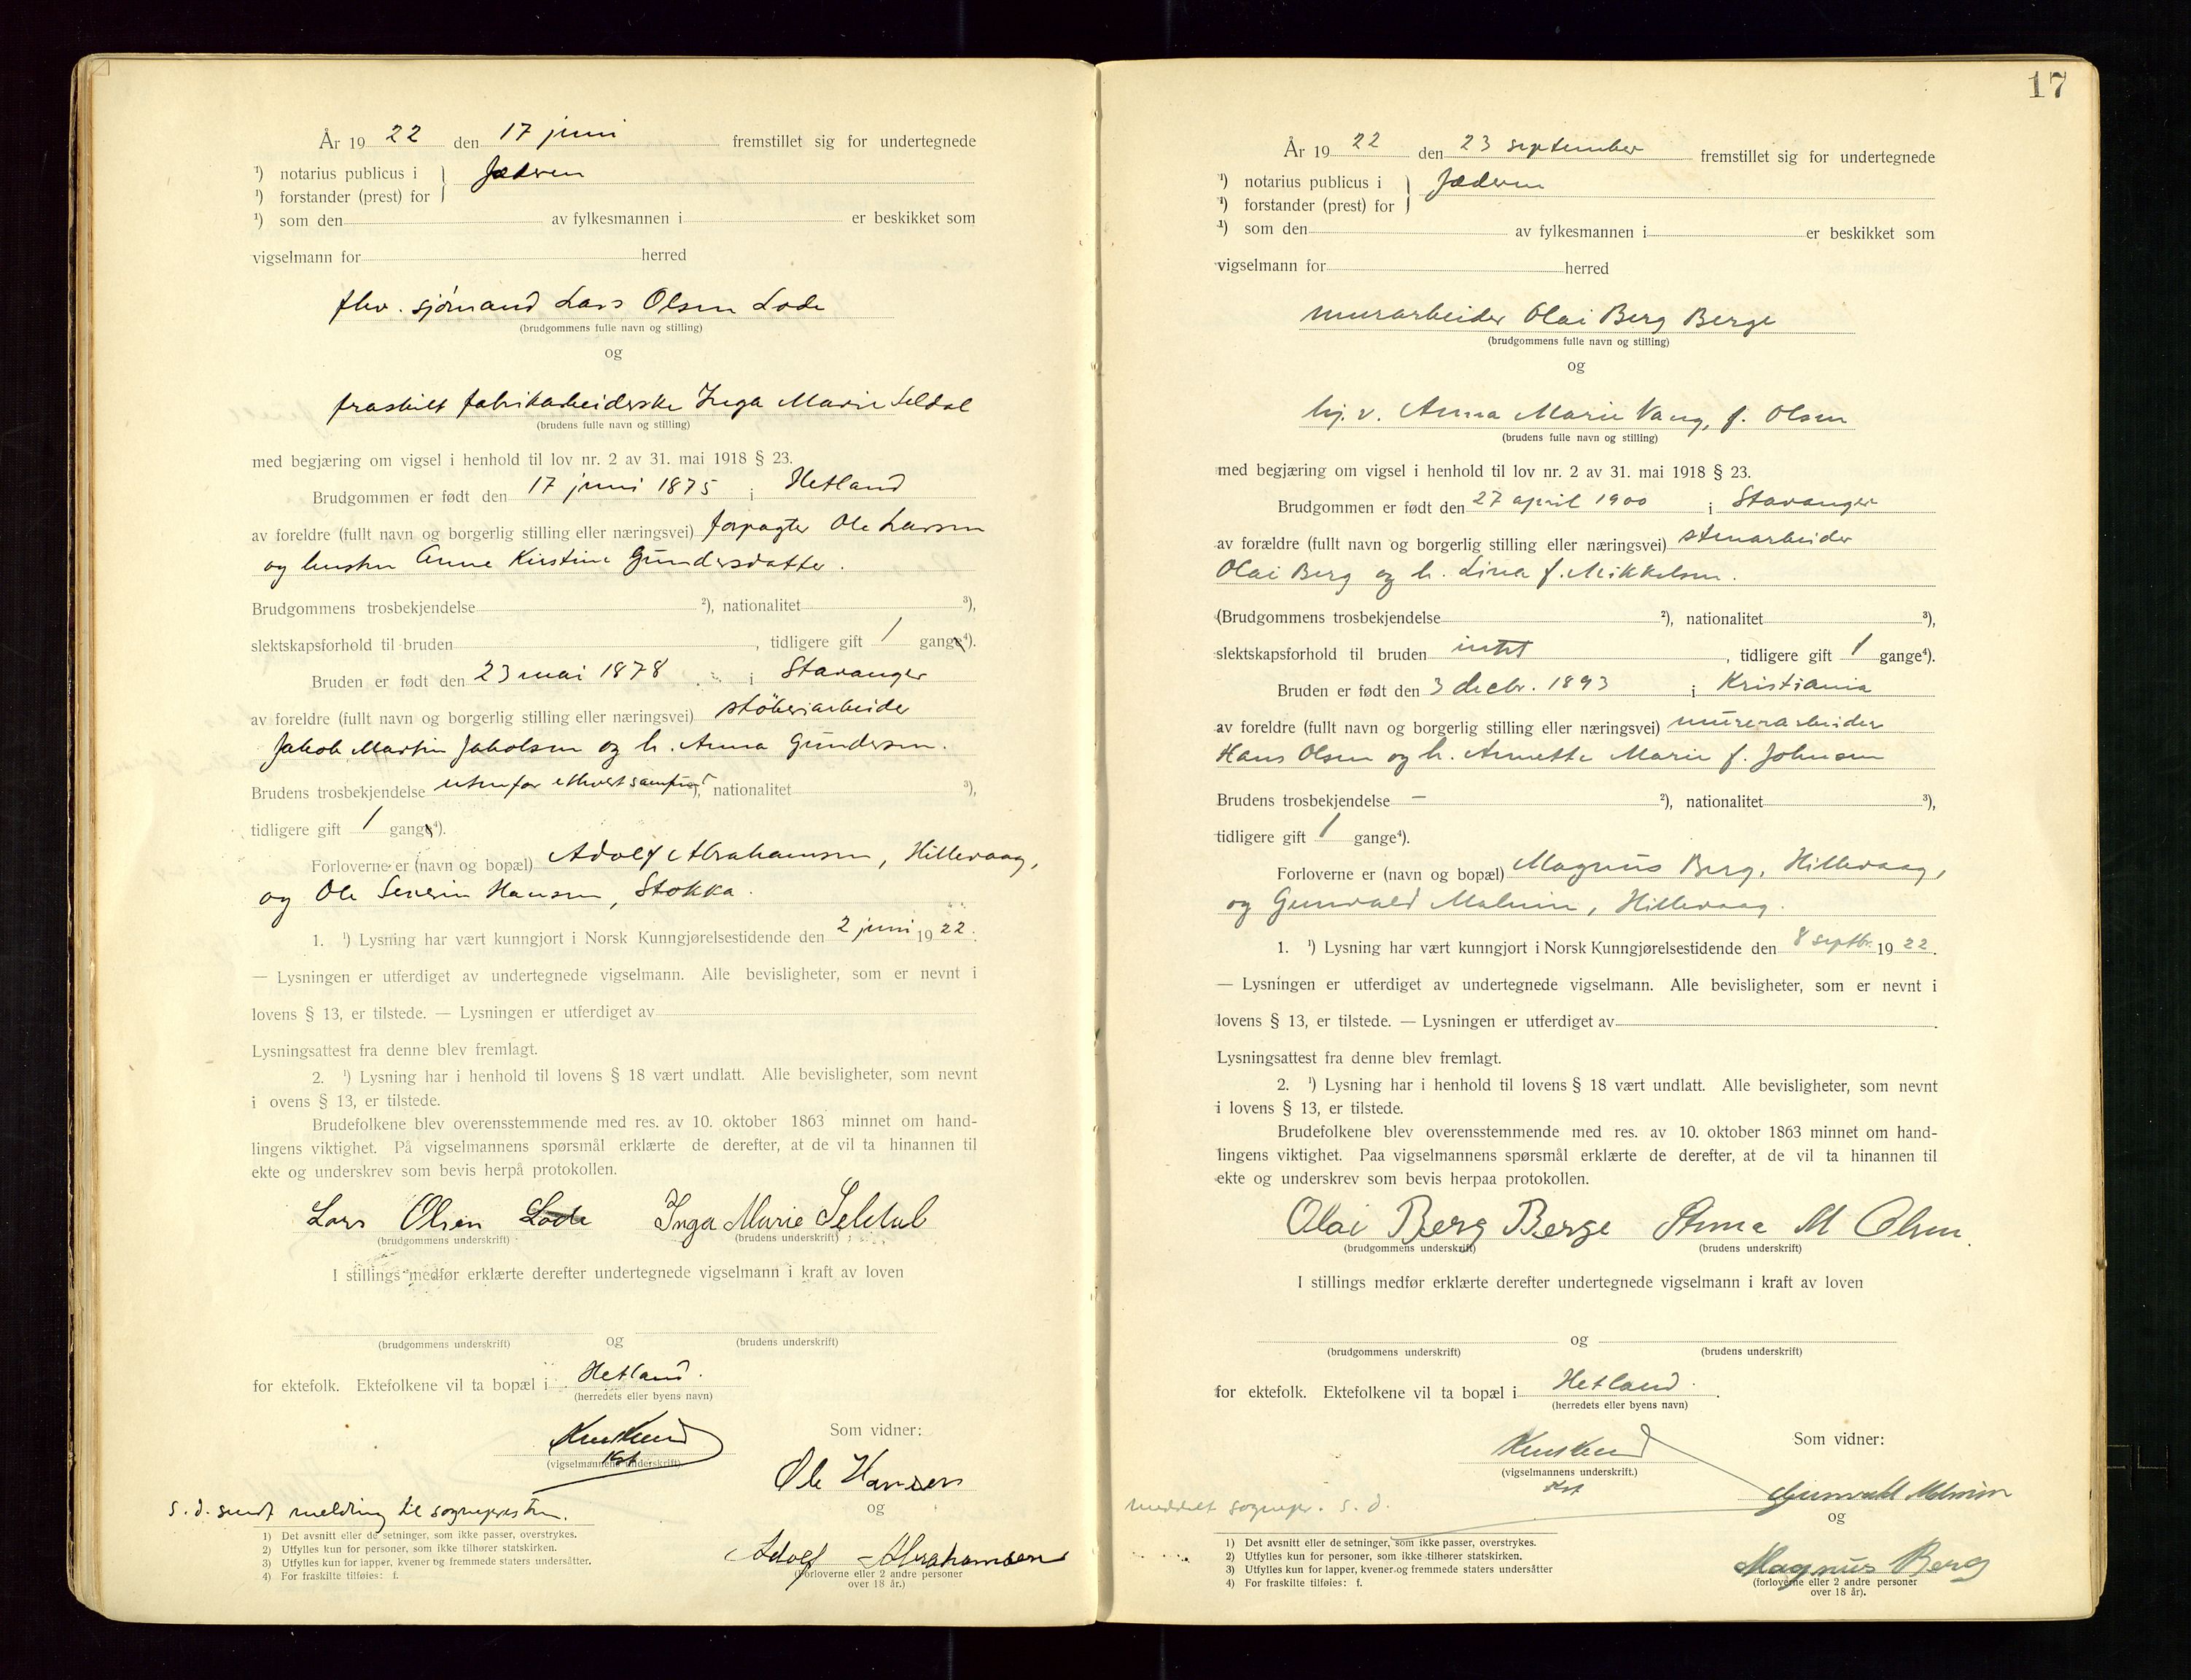 År 19 22 den 17 juni fremstillet sig for undertegnede
¹) notarius publicus i } Jæderen
¹) forstander (prest) for
¹) som den av fylkesmannen i er beskikket som
vigselmann for herred
fhv. sjømand Lars Olsen Lode
(brudgommens fulle navn og stilling)
og
fraskilt fabrikarbeiderske Inga Marie Seldal
(brudens fulle navn og stilling)
med begjæring om vigsel i henhold til lov nr. 2 av 31. mai 1918 § 23.
Brudgommen er født den 17 juni 1875 i Hetland
av foreldre (fullt navn og borgerlig stilling eller næringsvei) forpagter Ole Larsen
og hustru Anne Kirstine Gundersdatter.
Brudgommens trosbekjendelse ²), nationalitet ³),
slektskapsforhold til bruden , tidligere gift 1 gange⁴).
Bruden er født den 23 mai 1878 i Stavanger
av foreldre (fullt navn og borgerlig stilling eller næringsvei) støberiarbeider
Jakob Martin Jakobsen og h. Anna Gundersen.
Brudens trosbekjendelse utenfor ethvert samfund ²), nationalitet ³),
tidligere gift 1 gange⁴).
Forloverne er (navn og bopæl) Adolf Abrahamsen, Hillevaag,
og Ole Severin Hansen, Stokka.
1. ¹) Lysning har vært kunngjort i Norsk Kunngjørelsestidende den 2 juni 19 22.
— Lysningen er utferdiget av undertegnede vigselmann. Alle bevisligheter, som er nevnt i
lovens § 13, er tilstede. — Lysningen er utferdiget av
Lysningsattest fra denne blev fremlagt.
2. ¹) Lysning har i henhold til lovens § 18 vært undlatt. Alle bevisligheter, som nevnt
i ovens § 13, er tilstede.
Brudefolkene blev overensstemmende med res. av 10. oktober 1863 minnet om hand-
lingens viktighet. På vigselmannens spørsmål erklærte de derefter, at de vil ta hinannen til
ekte og underskrev som bevis herpå protokollen.
Lars Olsen Lode Inga Marie Seldal
(brudgommens underskrift) (brudens underskrift)
I stillings medfør erklærte derefter undertegnede vigselmann i kraft av loven
og
(brudgommens underskrift) (brudens underskrift)
for ektefolk. Ektefolkene vil ta bopæl i Hetland.
(herredets eller byens navn)
Som vidner:
(vigselmannens underskrift)
Ole Hansen
s. d. sendt melding til sognepresten.
og
Adolf Abrahamsen
(forloverne eller 2 andre personer
over 18 år.)
1) Det avsnitt eller de setninger, som ikke passer, overstrykes.
2) Utfylles kun for personer, som ikke tilhører statskirken.
3) Utfylles kun for lapper, kvener og fremmede staters undersåtter.
4) For fraskilte tilføies: f.
17
År 19 22 den 23 september fremstillet sig for undertegnede
¹) notarius publicus i } Jæderen
¹) forstander (prest) for
¹) som den av fylkesmannen i er beskikket som
vigselmann for herred
murarbeider Olai Berg Berge
(brudgommens fulle navn og stilling)
og
hj. v. Anna Marie Vang, f. Olsen
(brudens fulle navn og stilling)
med begjæring om vigsel i henhold til lov nr. 2 av 31. mai 1918 § 23.
Brudgommen er født den 27 april 1900 i Stavanger
av forældre (fullt navn og borgerlig stilling eller næringsvei) stenarbeider
Olai Berg og h. Lina f. Mikkelsen.
(Brudgommens trosbekjendelse ²), nationalitet ³),
slektskapsforhold til bruden intet , tidligere gift 1 gange⁴).
Bruden er født den 3 decbr. 1893 i Kristiania
av foreldre (fullt navn og borgerlig stilling eller næringsvei) murerarbeider
Hans Olsen og h. Annette Marie f. Johnsen
Brudens trosbekjendelse — ²), nationalitet ³),
tidligere gift 1 gange⁴).
Forloverne er (navn og bopæl) Magnus Berg, Hillevaag,
og Gunvald Malmin, Hillevaag.
1. ¹) Lysning har vært kunngjort i Norsk Kunngjørelsestidende den 8 septbr. 19 22.
— Lysningen er utferdiget av undertegnede vigselmann. Alle bevisligheter, som er nevnt i
lovens § 13, er tilstede. — Lysningen er utferdiget av
Lysningsattest fra denne blev fremlagt.
2. ¹) Lysning har i henhold til lovens § 18 vært undlatt. Alle bevisligheter, som nevnt
i lovens § 13, er tilstede.
Brudefolkene blev overensstemmende med res. av 10. oktober 1863 minnet om hand-
lingens viktighet. Paa vigselmannens spørsmål erklærte de derefter, at de vil ta hinannen til
ekte og underskrev som bevis herpaa protokollen.
Olai Berg Berge Anna M Olsen.
(brudgommens underskrift) (brudens underskrift)
I stillings medfør erklærte derefter undertegnede vigselmann i kraft av loven
og
(brudgommens underskrift) (brudens underskrift)
for ektefolk. Ektefolkene vil ta bopæl i Hetland.
(herredets eller byens navn)
Som vidner:
(vigselmannens underskrift.)
Gunvald Malmin
meddelt sognepr. s. d.
og
Magnus Berg
(forloverne eller 2 andre personer
over 18 år).
1) Det avsnitt eller de setninger, som ikke passer, overstrykes.
2) Utfylles kun for personer, som ikke tilhører statskirken.
3) Utfylles kun for lapper, kvener og fremmede staters undersåtter
4) For fraskilte tilføies: f.